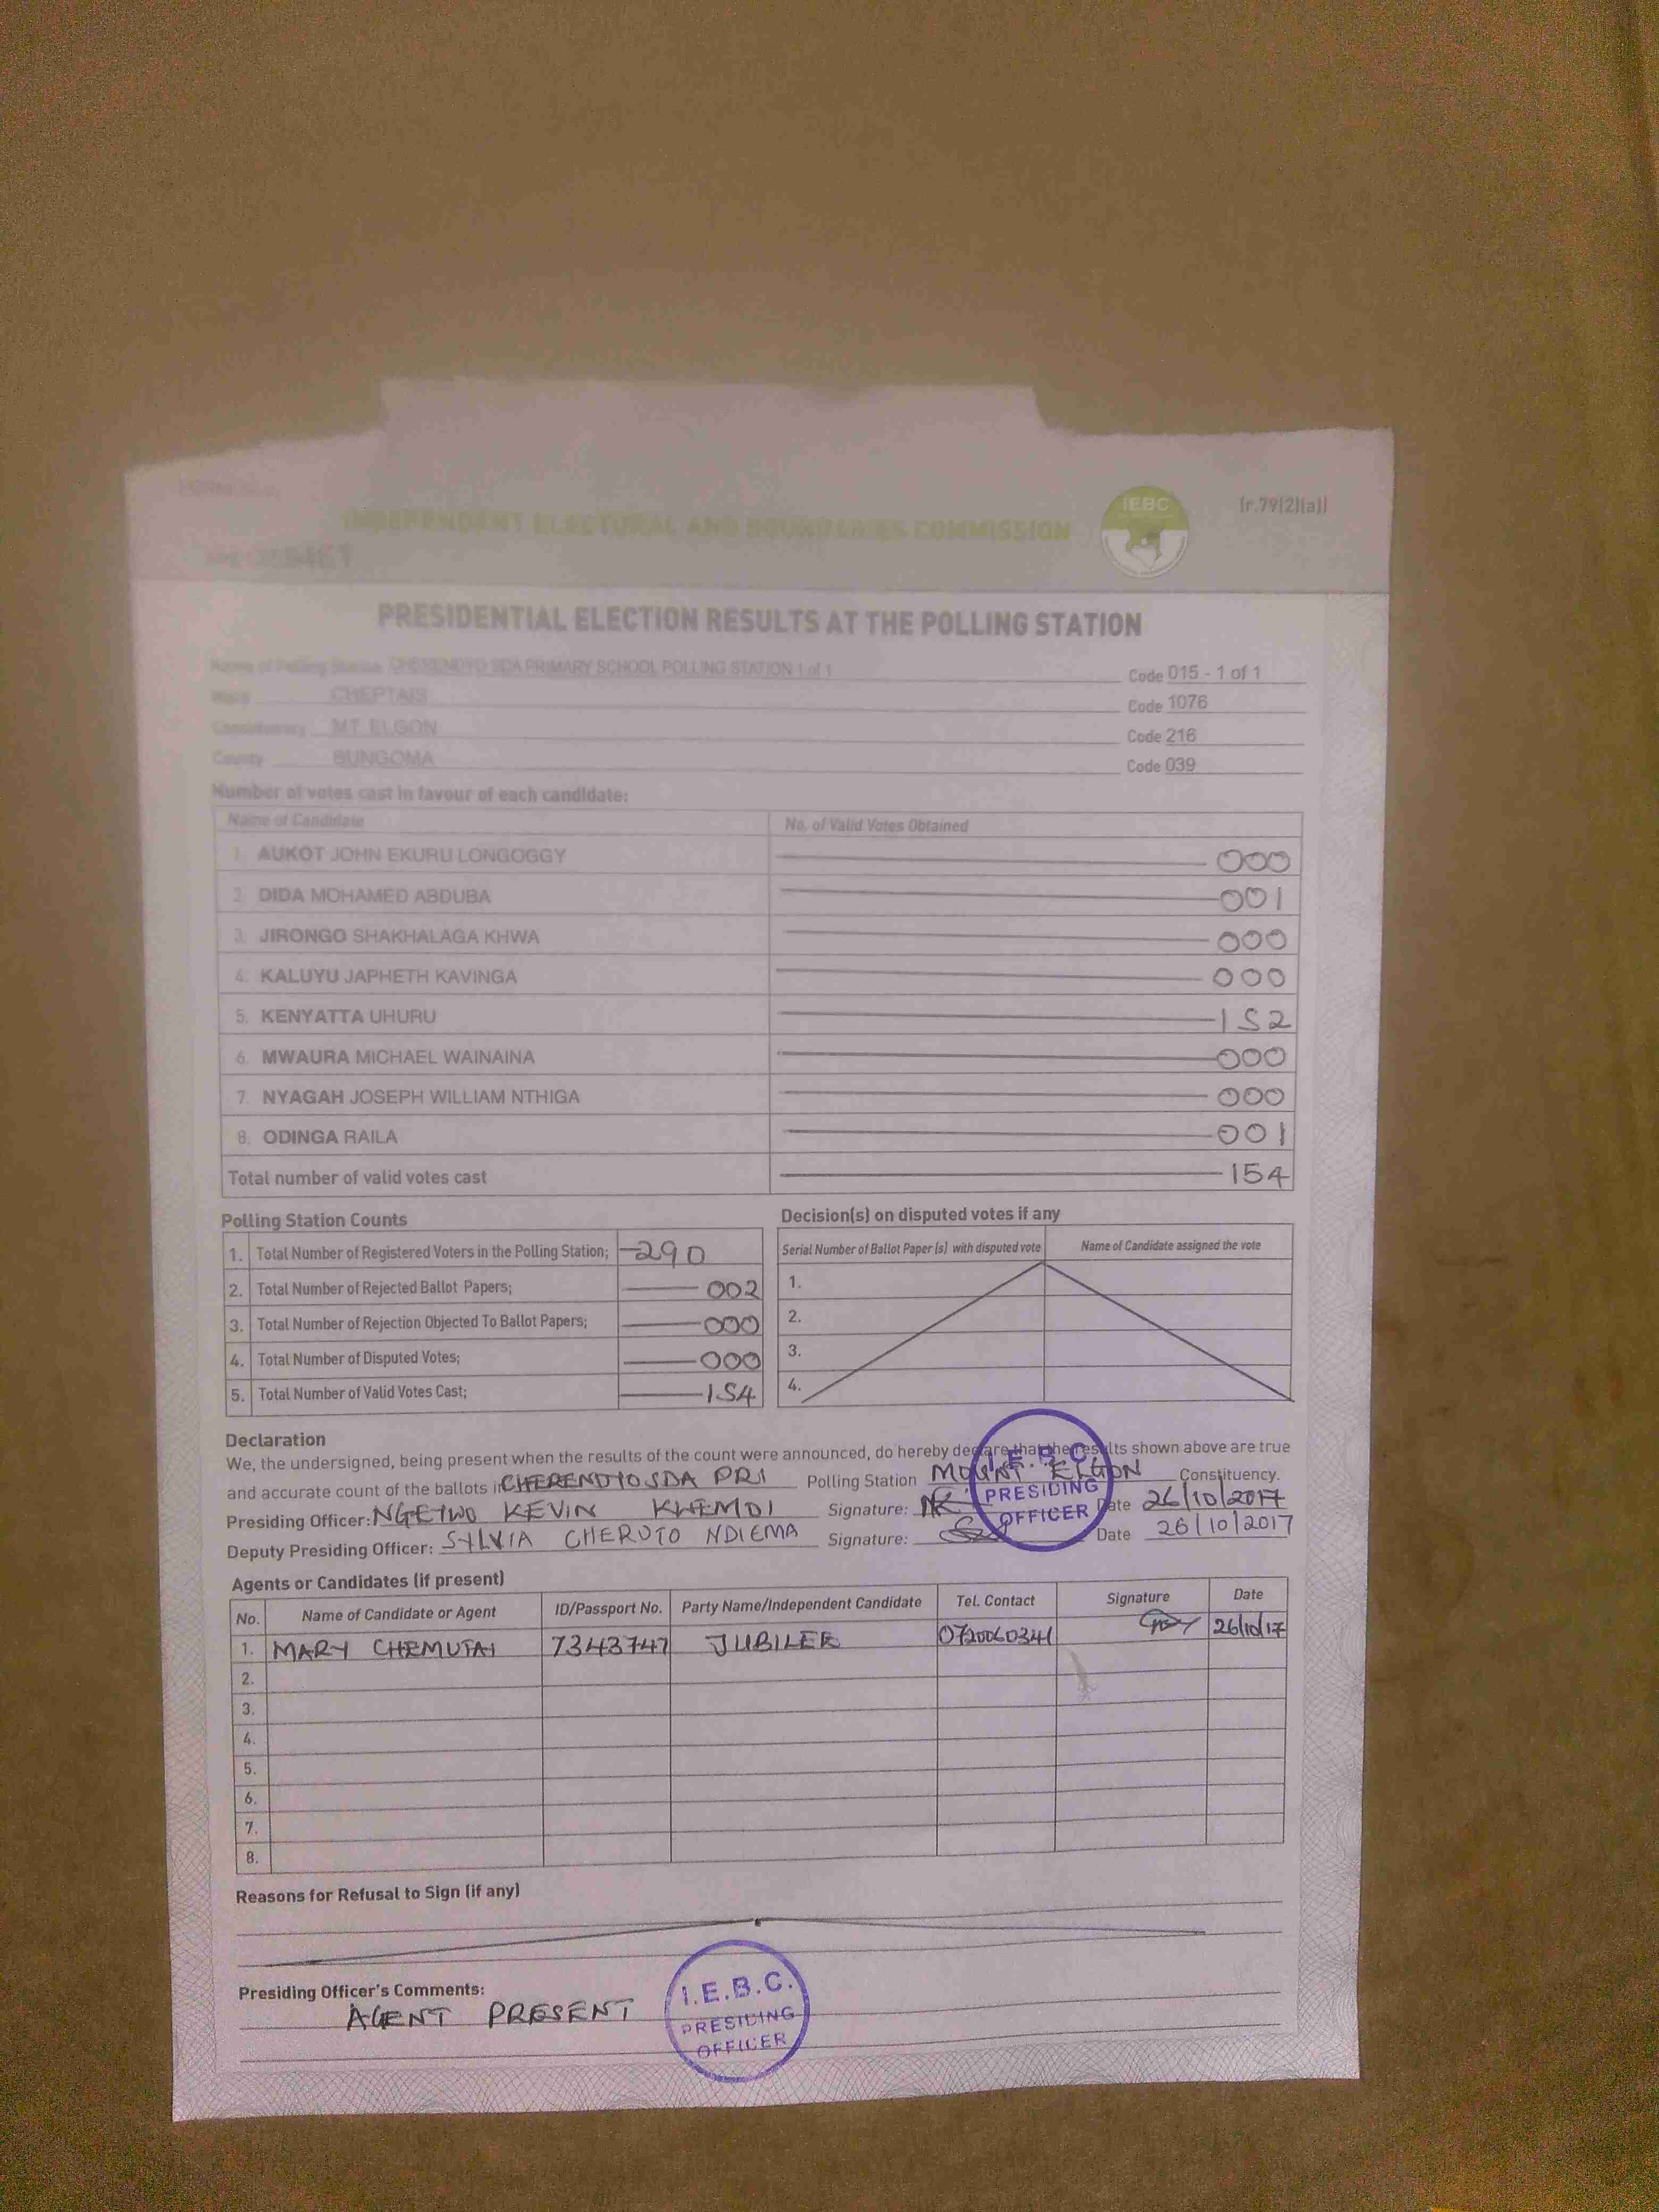 IEBC
(r.79(2)(a))
INDEPENDENT ELECTORAL AND BOUNDARIES COMMISSION
PRESIDENTIAL ELECTION RESULTS AT THE POLLING STATION
Name of Polling Station CHERENDYO SDA PRIMARY SCHOOL POLLING STATION 1 of 1 Code 015 - 1 of 1
Ward CHEPTAIS Code 1076
Constituency MT. ELGON Code 216
County BUNGOMA Code 039
Number of votes cast in favour of each candidate:
Name of Candidate No. of Valid Votes Obtained
1. AUKOT JOHN EKURU LONGOGGY 000
2. DIDA MOHAMED ABDUBA 001
3. JIRONGO SHAKHALAGA KHWA 000
4. KALUYU JAPHETH KAVINGA 000
5. KENYATTA UHURU 152
6. MWAURA MICHAEL WAINAINA 000
7. NYAGAH JOSEPH WILLIAM NTHIGA 000
8. ODINGA RAILA 001
Total number of valid votes cast 154
Polling Station Counts
1. Total Number of Registered Voters in the Polling Station; 290
2. Total Number of Rejected Ballot Papers; 002
3. Total Number of Rejection Objected To Ballot Papers; 000
4. Total Number of Disputed Votes; 000
5. Total Number of Valid Votes Cast; 154
Decision(s) on disputed votes if any
Serial Number of Ballot Paper (s) with disputed vote Name of Candidate assigned the vote
1.
2.
3.
4.
Declaration
We, the undersigned, being present when the results of the count were announced, do hereby declare that the results shown above are true
and accurate count of the ballots in CHERENDYO SDA PRI Polling Station MOUNT ELGON Constituency.
Presiding Officer: NGETWO KEVIN KHEMOI Signature: Date 26/10/2017
Deputy Presiding Officer: SYLVIA CHERUTO NDIEMA Signature: Date 26/10/2017
I.E.B.C
PRESIDING
OFFICER
Agents or Candidates (if present)
No. Name of Candidate or Agent ID/Passport No. Party Name/Independent Candidate Tel. Contact Signature Date
1. MARY CHEMUTAI 7343747 JUBILEE 0720060341 26/10/17
2.
3.
4.
5.
6.
7.
8.
Reasons for Refusal to Sign (if any)
Presiding Officer's Comments:
AGENT PRESENT
I.E.B.C.
PRESIDING
OFFICER